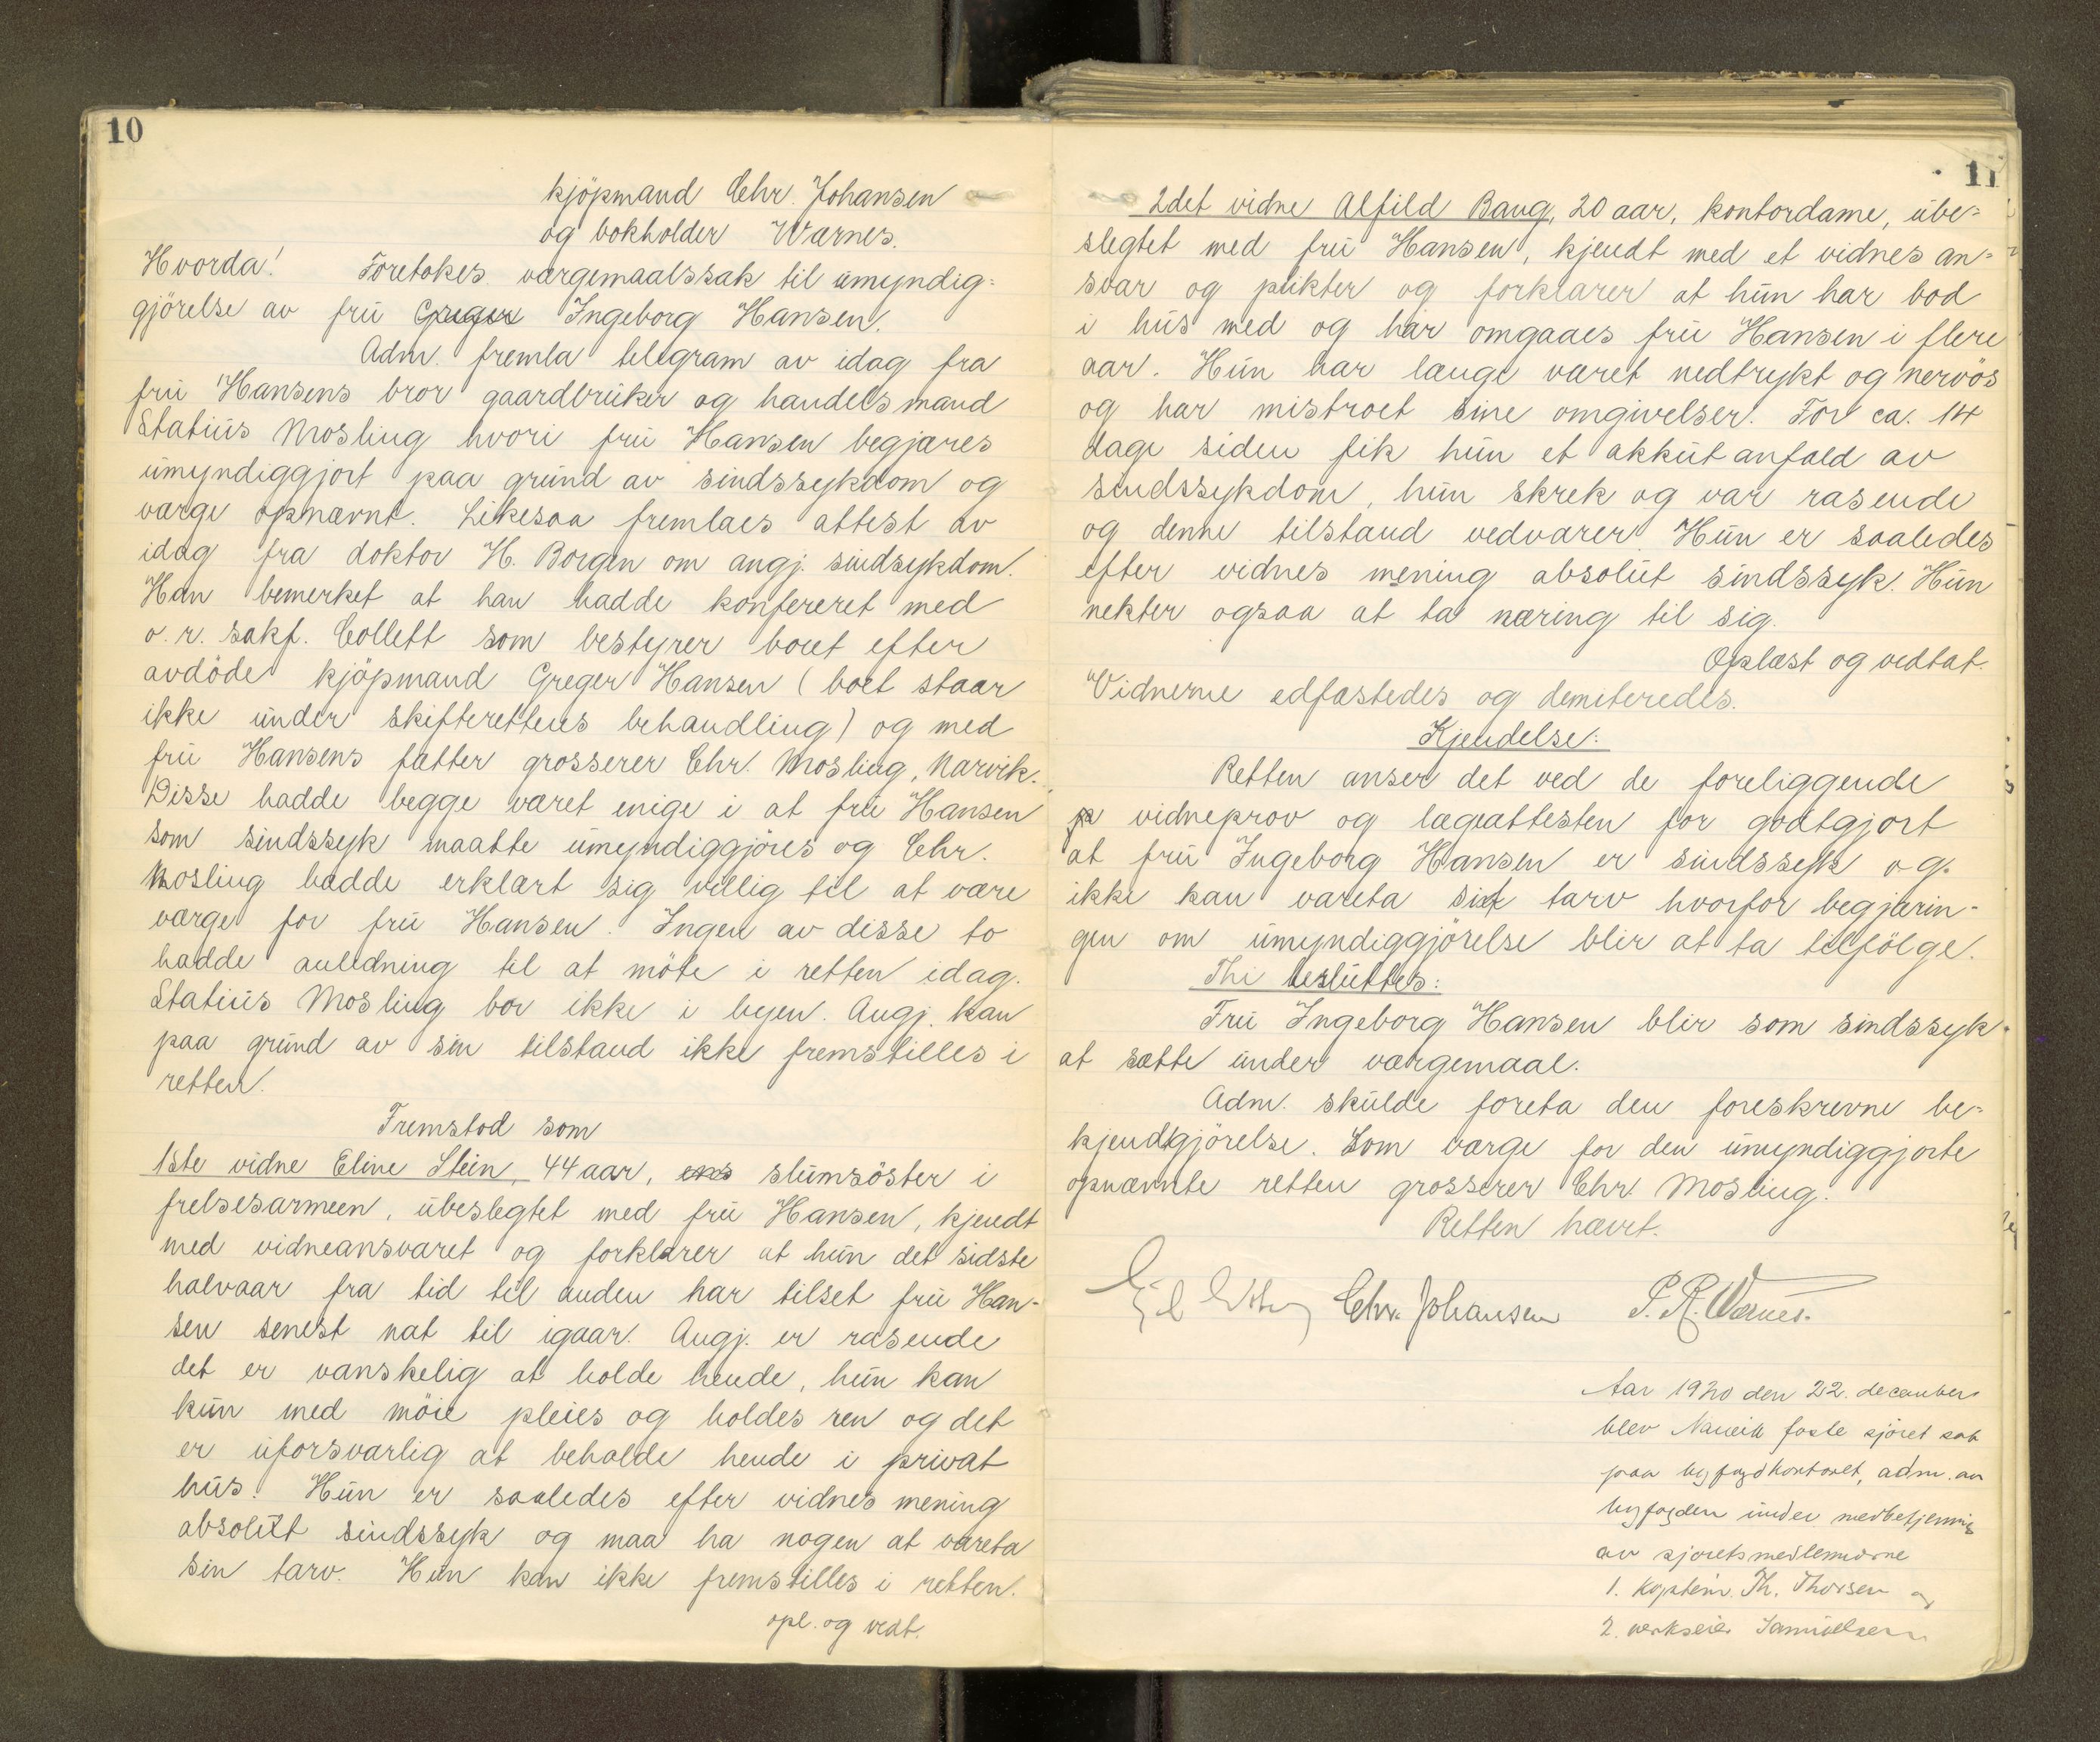 10
kjöpmand Chr. Johansen
og bokholder Wærnes.
Hvorda! Foretokes værgemaalssak til umyndig-
gjörelse av fru Greger Ingeborg Hansen.
Adm. fremla telegram av idag fra
fru Hansens bror gaardbruker og handelsmand
Statius Mosling hvori fru Hansen begjæres
umyndiggjort paa grund av sindssykdom og
værge opnævnt. Likesaa fremlaes attest av
idag fra doktor H. Borgen om angj. sindsykdom.
Han bemerket at han hadde konfereret med
o.r. sakf. Collett som bestyrer boet efter
avdöde kjöpmand Greger Hansen (boet staar
ikke under skifterettens behandling) og med
fru Hansens fætter grosserer Chr. Mosling, Narvik.
Disse hadde begge været enige i at fru Hansen
som sindssyk maatte umyndiggjöres og Chr.
Mosling hadde erklært sig villig til at være
værge for fru Hansen. Ingen av disse to
hadde anledning til at möte i retten idag.
Statius Mosling bor ikke i byen. Angj. kan
paa grund av sin tilstand ikke fremstilles i
retten.
Fremstod som
1ste vidne Eline Stein, 44 aar, slumsöster i
frelsesarmeen, ubeslegtet med fru Hansen, kjendt
med vidneansvaret og forklarer at hun det sidste
halvaar fra tid til anden har tilset fru Han-
sen senest nat til igaar. Angj. er rasende
det er vanskelig at holde hende, hun kan
kun med möie pleies og holdes ren og det
er uforsvarlig at beholde hende i privat
hus. Hun er saaledes efter vidnes mening
absolut sindssyk og maa ha nogen at vareta
sin tarv. Hun kan ikke fremstilles i retten.
opl. og vedt.
11
2det vidne Alfild Baug, 20 aar, kontordame, ube-
slegtet med fru Hansen, kjendt med et vidnes an-
svar og plikter og forklarer at hun har bod
i hus med og har omgaaes fru Hansen i flere
aar. Hun har længe været nedtrykt og nervös
og har mistroet sine omgivelser. For ca. 14
dage siden fik hun et akkut anfald av
sindssykdom, hun skrek og var rasende
og denne tilstand vedvarer. Hun er saaledes
efter vidnes mening absolut sindssyk. Hun
nekter ogsaa at ta næring til sig.
Oplæst og vedtat.
Vidnerne edfæstedes og demiteredes.
Kjendelse:
Retten anser det ved de foreliggende
vidneprov og lægeattesten for godtgjort
at fru Ingeborg Hansen er sindssyk og
ikke kan vareta sit tarv hvorfor begjærin-
gen om umyndiggjörelse blir at ta tilfölge.
Thi besluttes:
Fru Ingeborg Hansen blir som sindssyk
at sætte under værgemaal.
Adm. skulde foreta den foreskrevne be-
kjendtgjörelse. Som værge for den umyndiggjorte
opnævnte retten grosserer Chr. Mosling.
Retten hævet.
Chr. Johansen P. R. Wærnes.
Aar 1920 den 22. december
blev Narvik faste sjöret sat
paa byfogdkontoret, adm. av
byfogden under medbetjening
av sjöretsmedlemmerne
1. Kaptein Th. Thorsen og
2. verkseier Samuelsen